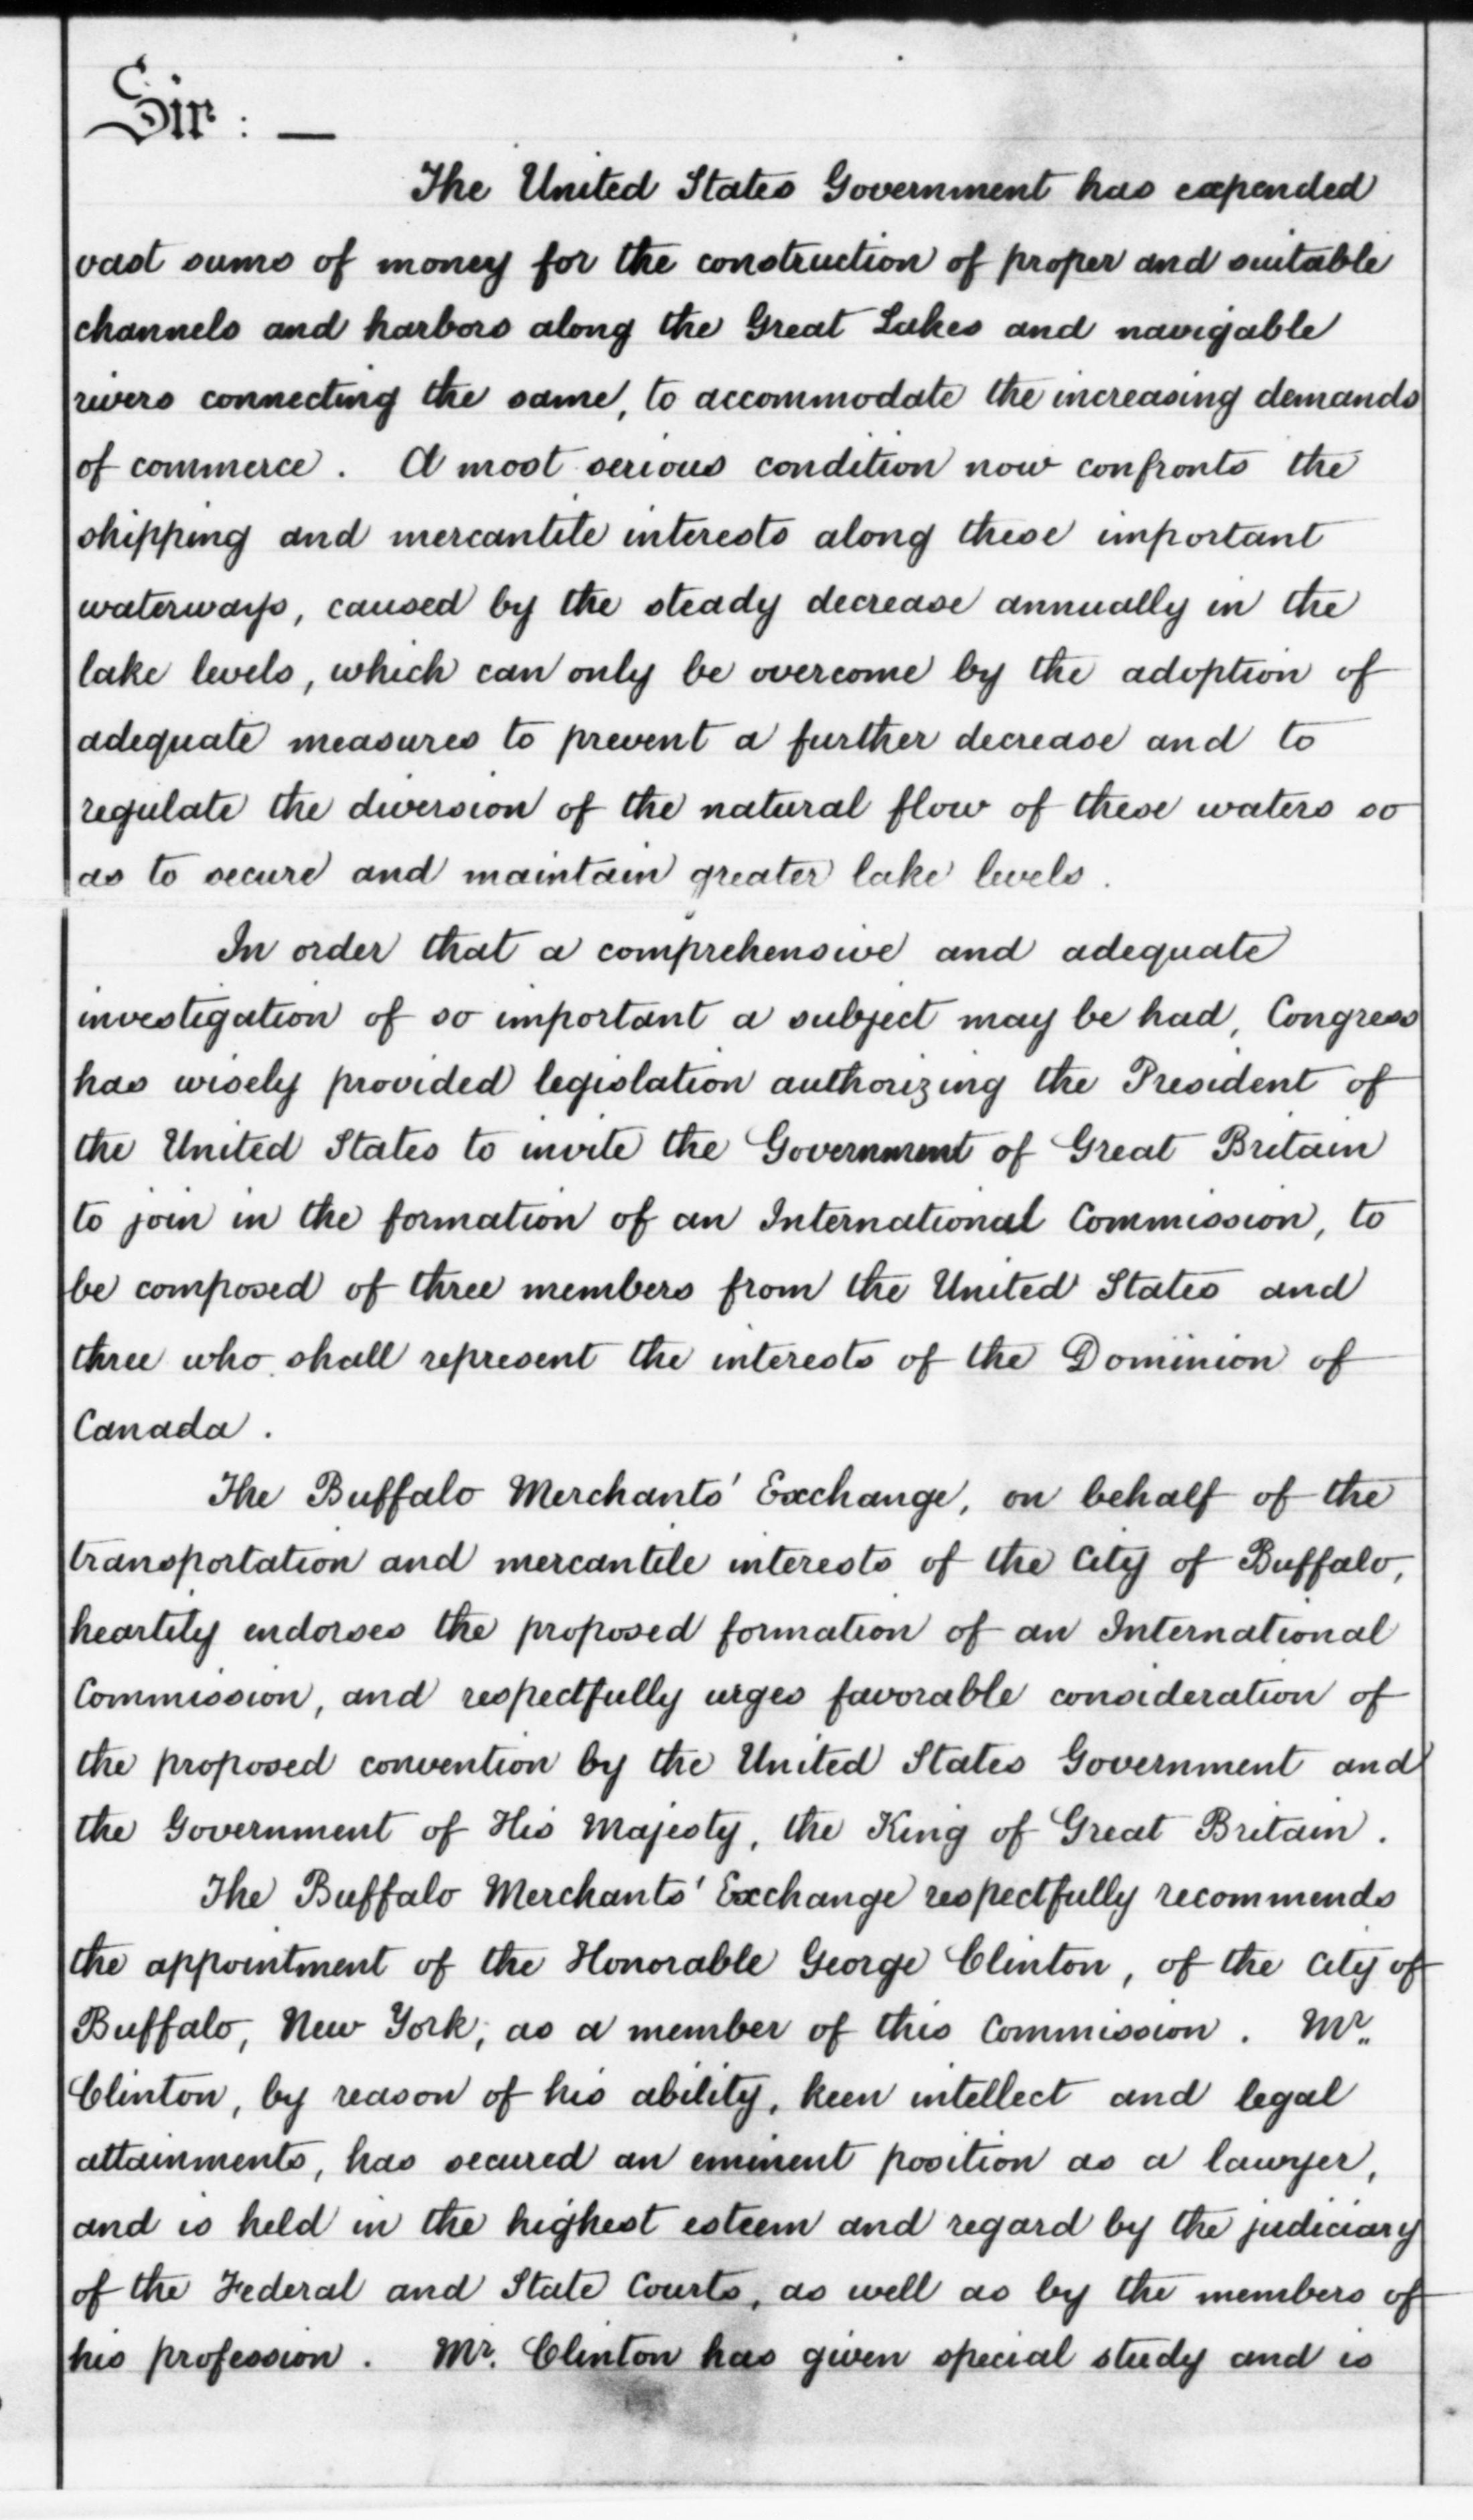 Sir : —
The United States Government has expended
vast sums of money for the construction of proper and suitable
channels and harbors along the Great Lakes and navigable
rivers connecting the same, to accommodate the increasing demands
of commerce. A most serious condition now confronts the
shipping and mercantile interests along these important
waterways, caused by the steady decrease annually in the
lake levels, which can only be overcome by the adoption of
adequate measures to prevent a further decrease and to
regulate the diversion of the natural flow of these waters so
as to secure and maintain greater lake levels.
In order that a comprehensive and adequate
investigation of so important a subject may be had, Congress
has wisely provided legislation authorizing the President of
the United States to invite the Government of Great Britain
to join in the formation of an International Commission, to
be composed of three members from the United States and
three who shall represent the interests of the Dominion of
Canada.
The Buffalo Merchants' Exchange, on behalf of the
transportation and mercantile interests of the City of Buffalo,
heartily endorses the proposed formation of an International
Commission, and respectfully urges favorable consideration of
the proposed convention by the United States Government and
the Government of His Majesty, the King of Great Britain.
The Buffalo Merchants' Exchange respectfully recommends
the appointment of the Honorable George Clinton, of the City of
Buffalo, New York, as a member of this Commission. Mr.
Clinton, by reason of his ability, keen intellect and legal
attainments, has secured an eminent position as a lawyer,
and is held in the highest esteem and regard by the judiciary
of the Federal and State Courts, as well as by the members of
his profession. Mr. Clinton has given special study and is